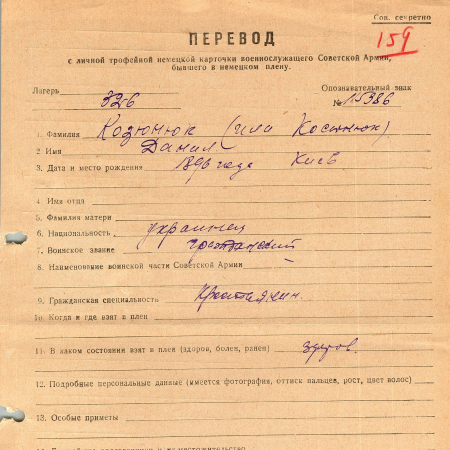 Сов. секретно
159
ПЕРЕВОД
с личной трофейной немецкой карточки военнослужащего Советской Армии,
бывшего в немецком плену.
Лагерь 326
Опознавательный знак
№ 15386
1. Фамилия Козюнюк (или Косынюк)
2 Имя Данил
3. Дата и место рождения 1896 года Киев
4. Имя отца
5. Фамилия матери
6. Национальность украинец
7. Воинское звание гражданский
8. Наименование воинской части Советской Армии
9. Гражданская специальность крестьянин
10. Когда и где взят в плен
11. В каком состоянии взят в плен (здоров, болен, ранен) здоров.
12. Подробные персональные данные (имеется фотография, оттиск пальцев, рост, цвет волос)
13. Особые приметы